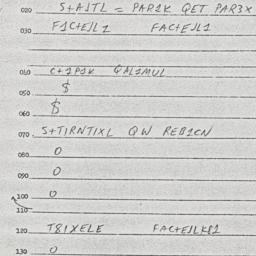 020 S+AJTL = PAR1K QET PAR3X
030 FJC+EJL1 FAC+EJL1
040 C+1P1K QAL1MUL
050 $
060 $
070 S+TIRNTIXL QW REB1CN
080 O
090 O
100 O
110
120 T81XELE FAC+EJLKP1
130 O